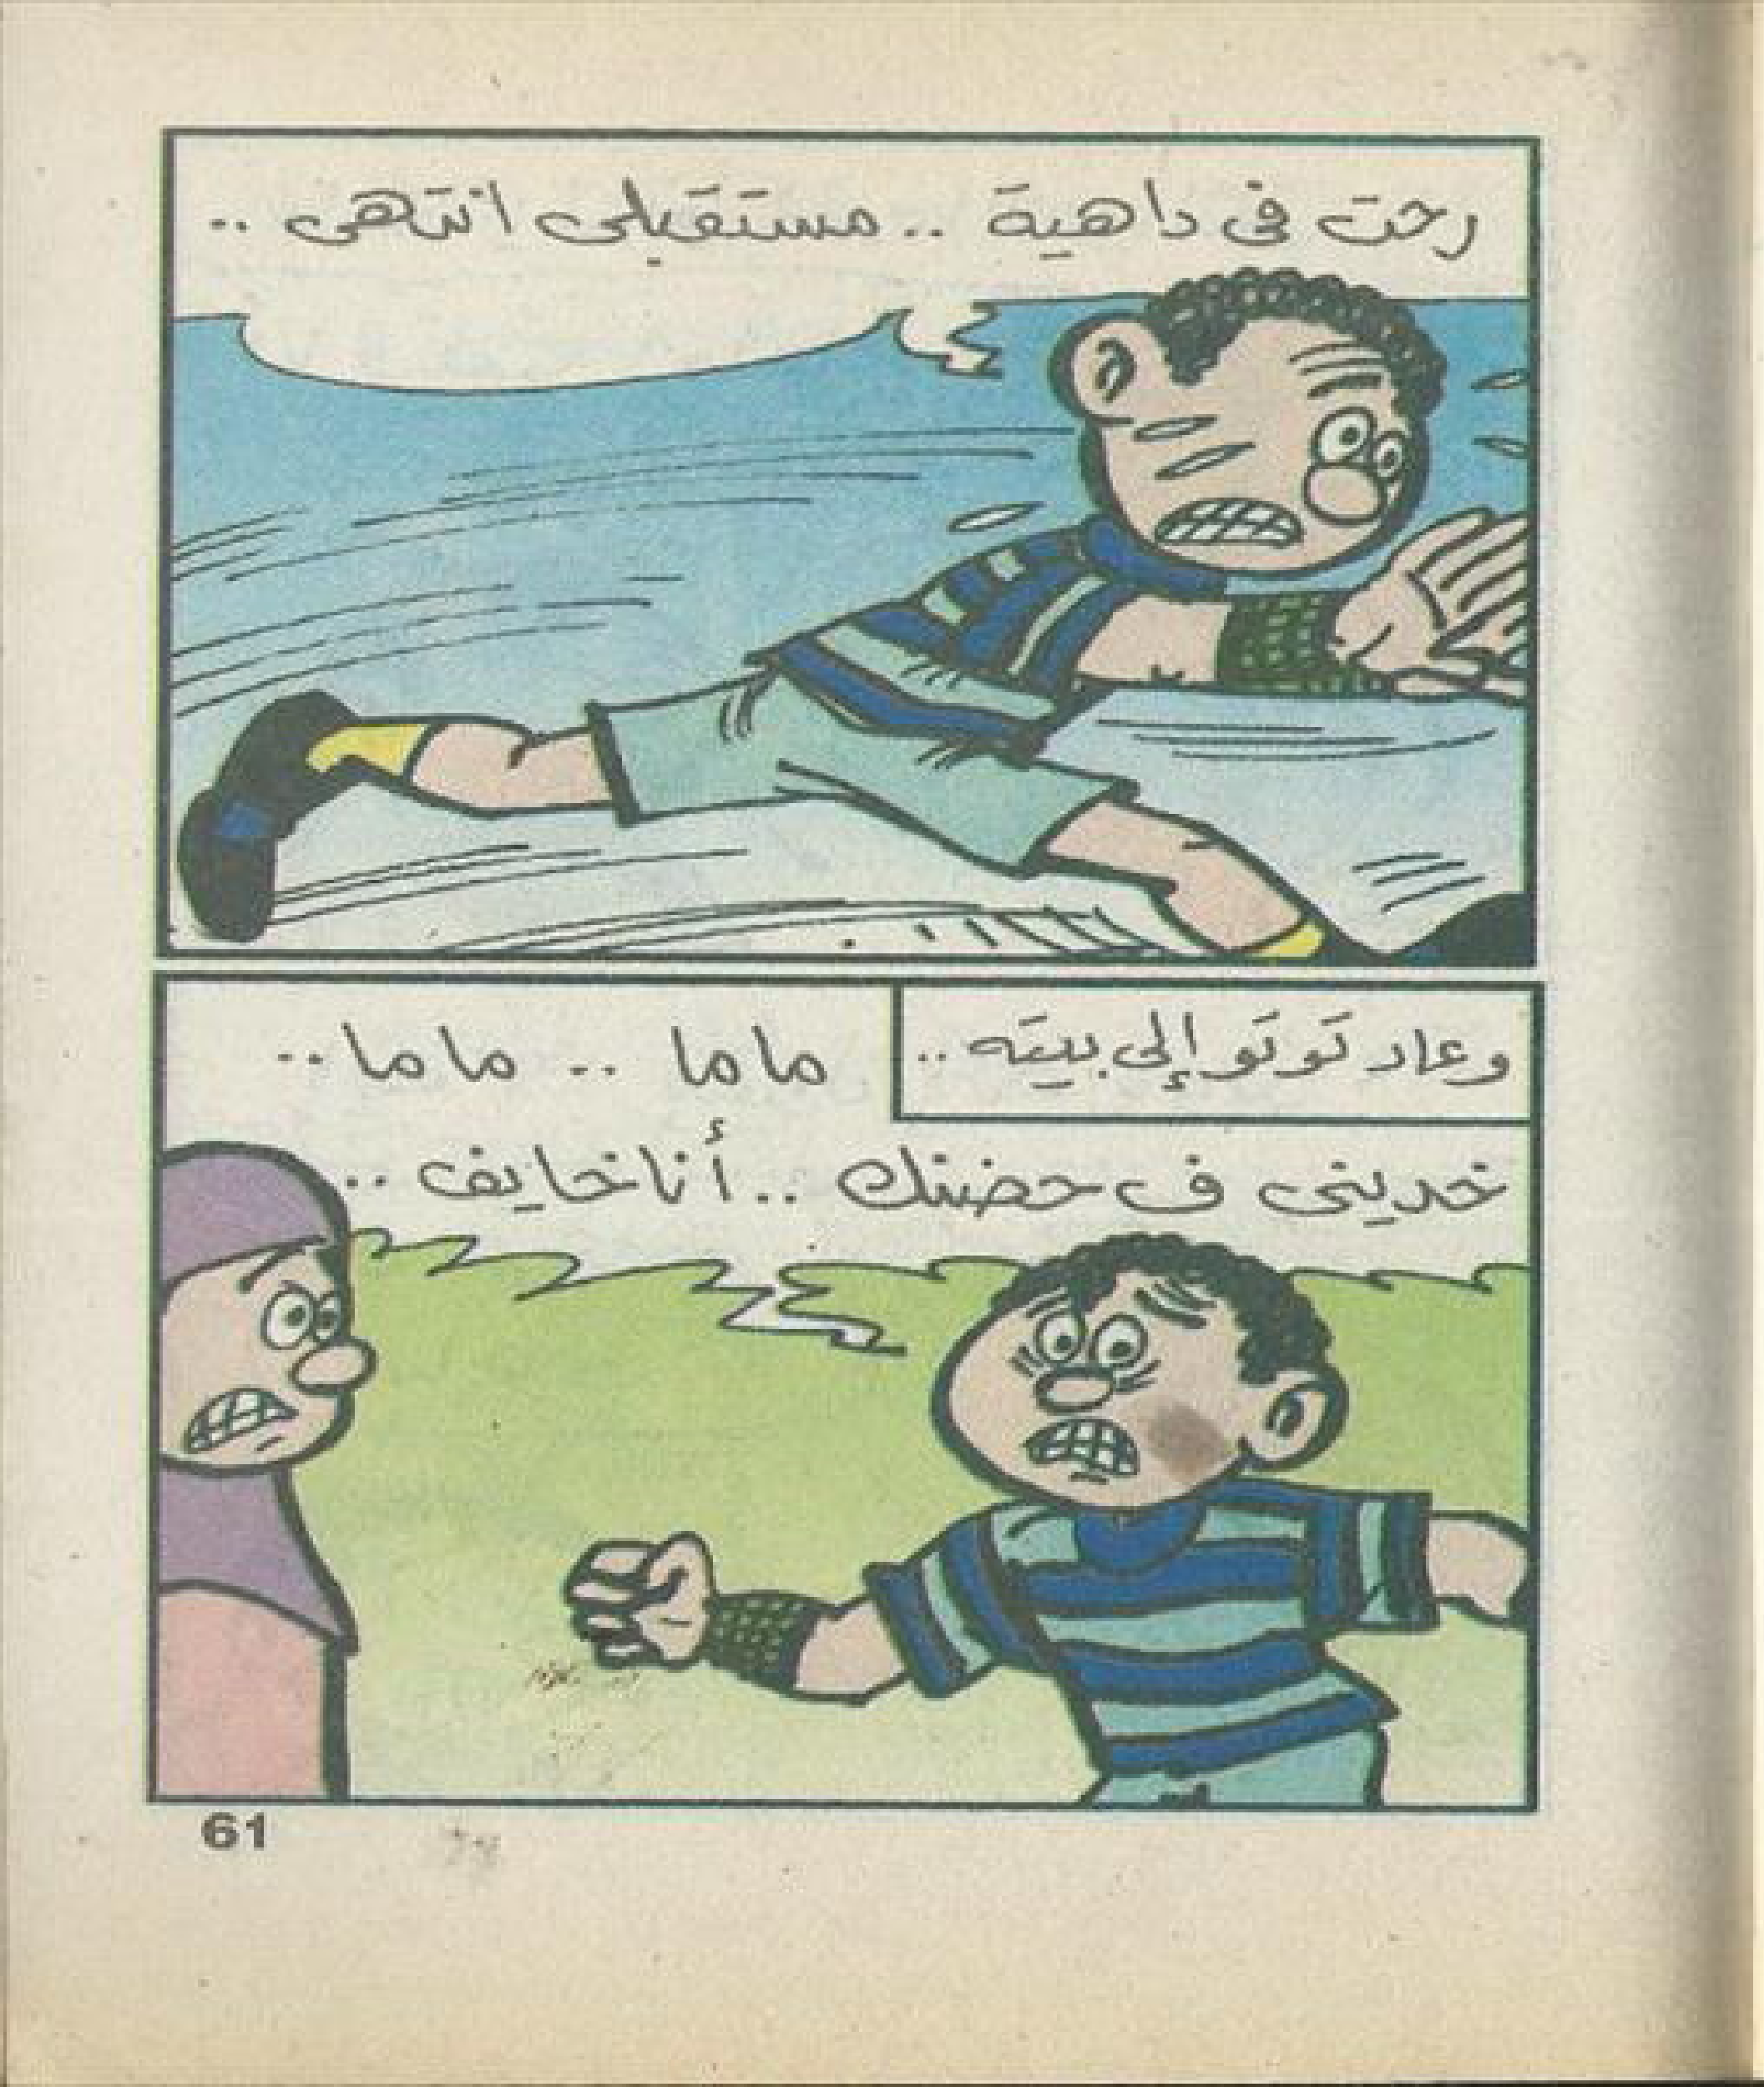 رحت فى داهية .. مستقبلى انتهى ..
وعاد توتو إلى بيته ..
ماما .. ماما ..
خدينى ف حضنك .. أنا خايف ..
61